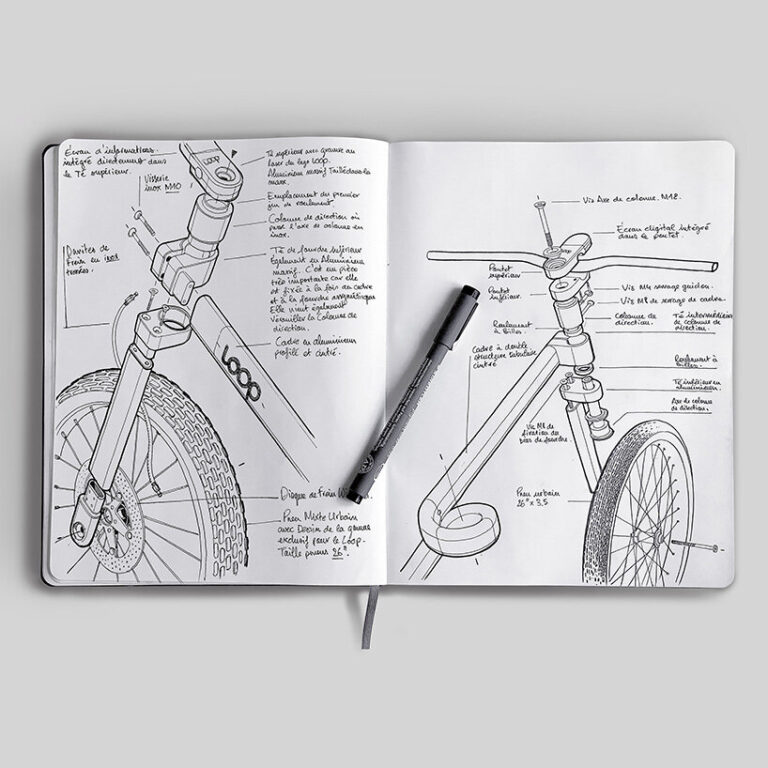 Écran d'informations
intégré directement dans
le Té supérieur.
Visserie
inox M10
Durites de
Frein en inox
tressées.
LOOP
Té supérieur avec gravure au
laser du logo LOOP.
Aluminium massif Taillé dans la
masse.
Emplacement du premier
jeu de roulement
Colonne de direction où
passe l'axe de colonne en
inox.
Té de fourche inférieur
Egalement en Aluminium
massif. C'est une pièce
très importante car elle
est fixée à la fois au cadre
et à la fourche
Elle vient également
verrouiller la Colonne de
direction.
Cadre en aluminium
profilé et cintré.
LOOP
Disque de Frein
Pneu Mixte Urbain
avec Dessin de la gomme
exclusif pour le Loop.
Taille pneus 26"
Vis Axe de colonne. M18.
Écran digital intégré
dans le pontet.
Pontet
supérieur
Pontet
inférieur.
Vis M4 serrage guidon.
Vis M8 de serrage de cadre.
Colonne de
direction.
Té intermédiaire
de colonne de
direction.
Roulement
à billes
Cadre à double
structure tubulaire
cintré
Roulement à
billes.
Té inférieur en
aluminium.
Axe de colonne
de direction.
Vis M8 de
fixation du
bras de fourche.
Pneu urbain
26" x 3,5